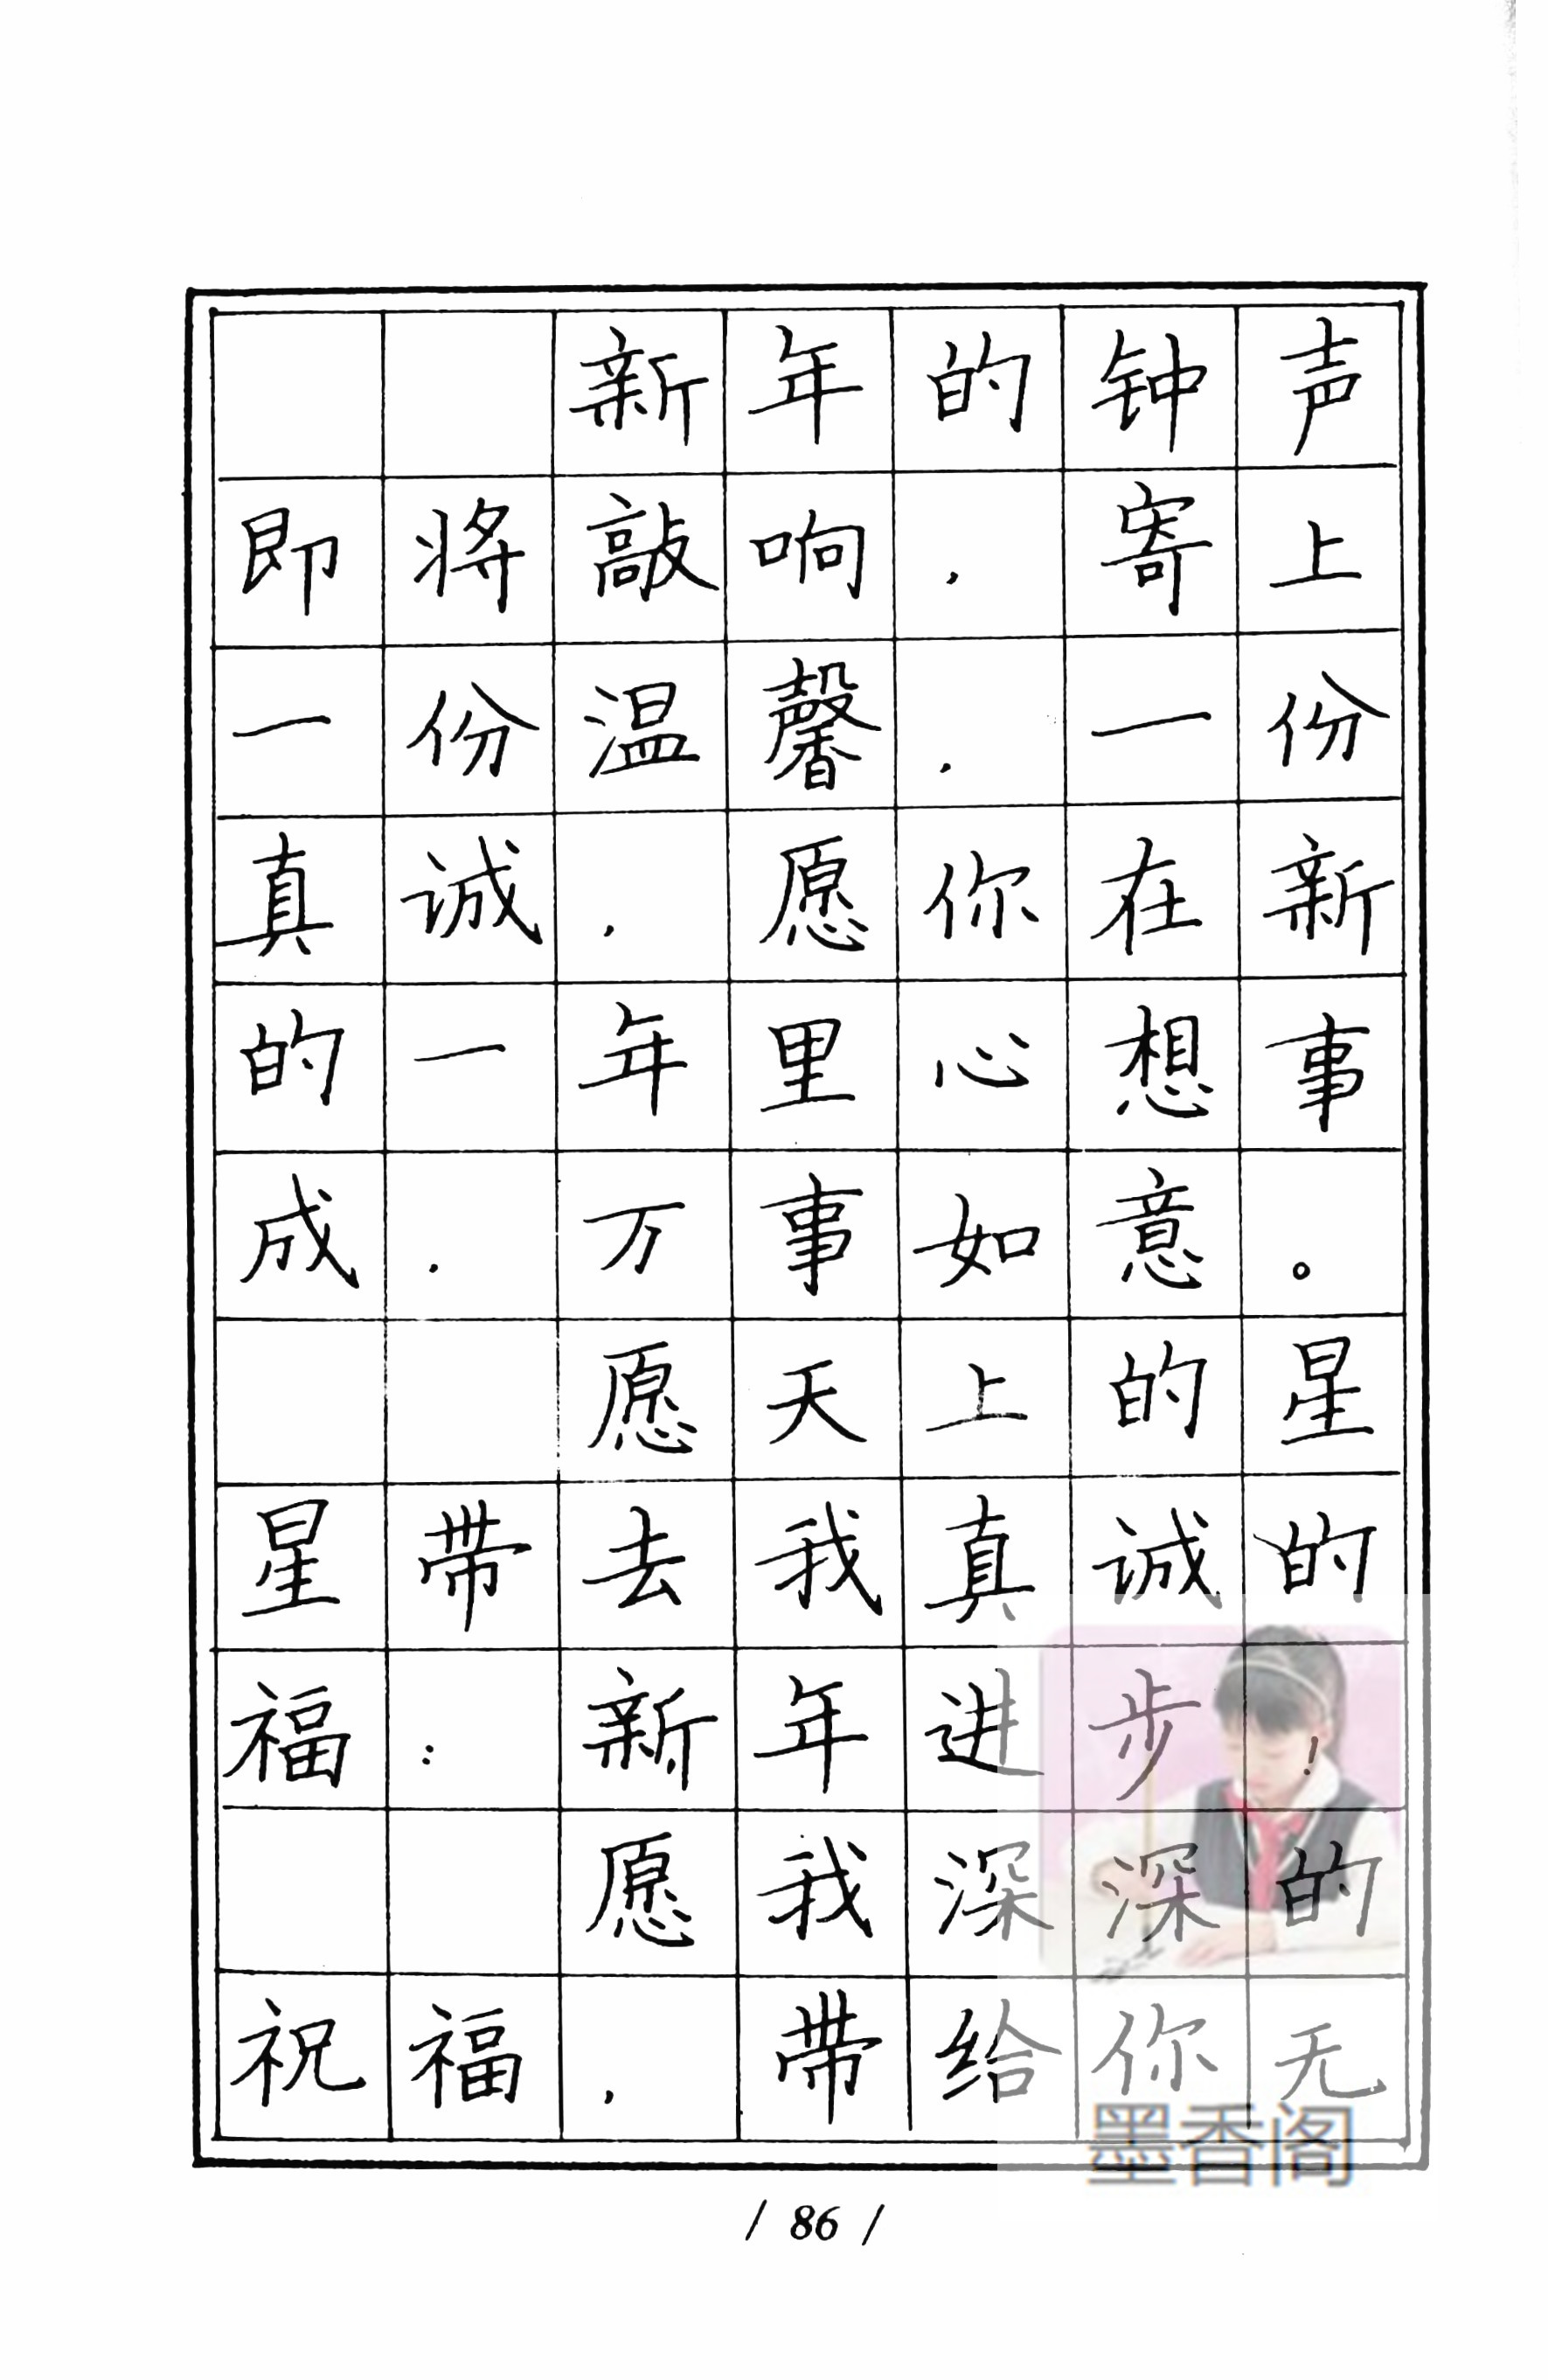 新年的钟声
即将敲响，寄上
一份温馨，一份
真诚，愿你在新
的一年里心想事
成，万事如意。
愿天上的星
星带去我真诚的
福：新年进步！
愿我深深的
祝福，带给你无
墨香阁
/ 86 /